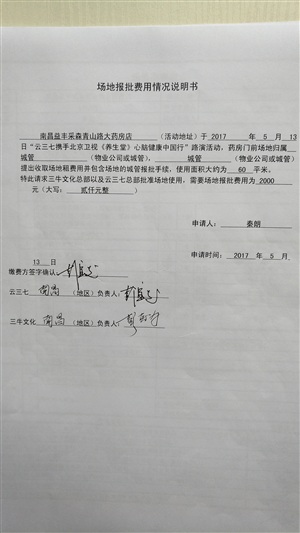 场地报批费用情况说明书
南昌益丰采森青山路大药房店 (活动地址)于 2017 年 5 月 13
日"云三七携手北京卫视《养生堂》心脑健康中国行"路演活动,药房门前场地归属
城管 (物业公司或城管), 城管 (物业公司或城管)
提出收取场地租费用并包含场地的城管报批手续,使用面积大约为 60 平米。
特此请求三牛文化总部以及云三七总部批准场地使用,需要场地报批费用为 2000
元(大写: 贰仟元整 )
申请人: 秦朗
申请时间: 2017 年 5 月
13 日
缴费方签字确认:
云三七 南昌 (地区)负责人:
三牛文化 南昌 (地区)负责人: